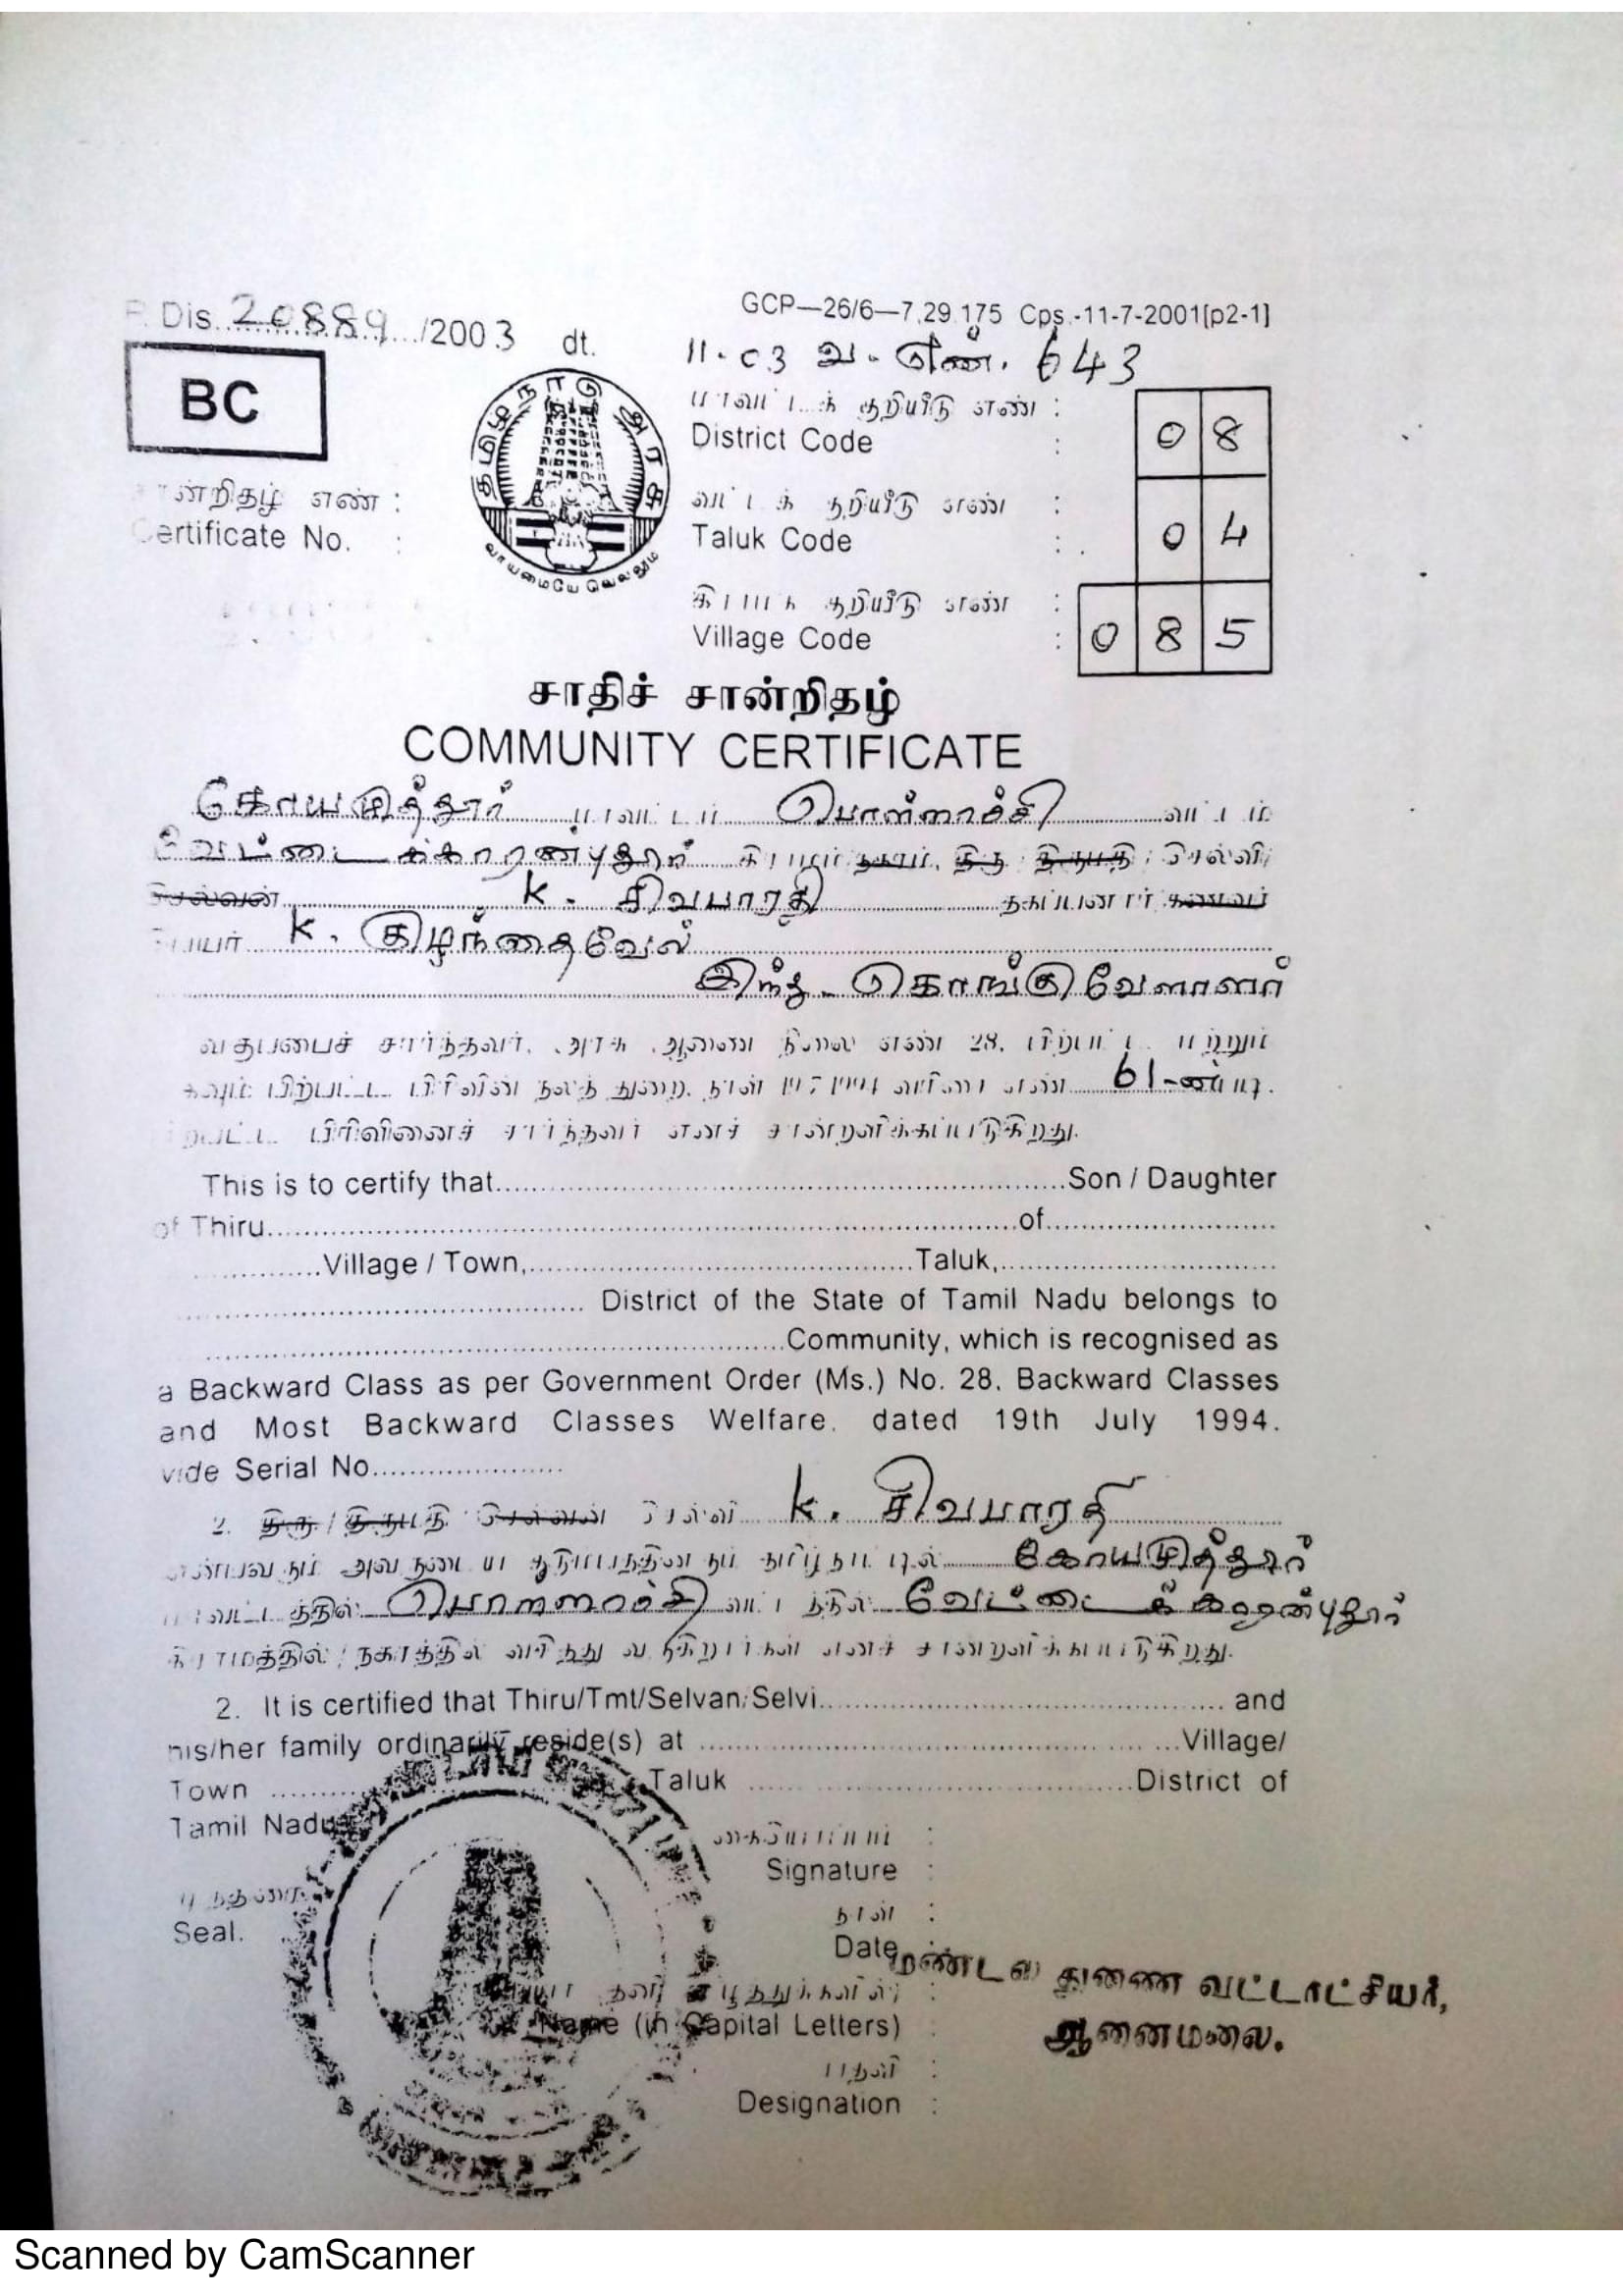 P. Dis. 20889 /2003 dt.
GCP—26/6—7,29,175 Cps.-11-7-2001[p2-1]
11.03 வ.எண். 643
BC
தமிழ்நாடு அரசு
வாய்மையே வெல்லும்
மாவட்டக் குறியீடு எண் :
District Code : 08
சான்றிதழ் எண் :
Certificate No. :
வட்டக் குறியீடு எண் :
Taluk Code : 04
கிராமக் குறியீடு எண் :
Village Code : 085
சாதிச் சான்றிதழ்
COMMUNITY CERTIFICATE
கோயமுத்தூர் மாவட்டம் பொள்ளாச்சி வட்டம்
வேட்டைக்காரன்புதூர் கிராமம்/நகரம், திரு/திருமதி/செல்வி/
செல்வன் K. சிவபாரதி தகப்பனார்/கணவர்
பெயர் K. குழந்தைவேல்
இந்து - கொங்குவேளாளர்
வகுப்பைச் சார்ந்தவர். அரசு ஆணை நிலை எண் 28, பிற்பட்ட மற்றும்
மிகவும் பிற்பட்ட பிரிவின் நலத் துறை, நாள் 19-7-1994 வரிசை எண் 61-ன்படி
பிற்பட்ட பிரிவினைச் சார்ந்தவர் எனச் சான்றளிக்கப்படுகிறது.
This is to certify that Son / Daughter
of Thiru of
Village / Town, Taluk,
District of the State of Tamil Nadu belongs to
Community, which is recognised as
a Backward Class as per Government Order (Ms.) No. 28, Backward Classes
and Most Backward Classes Welfare, dated 19th July 1994.
vide Serial No.
2. திரு / திருமதி செல்வன் செல்வி K. சிவபாரதி
என்பவரும் அவருடைய குடும்பத்தினரும் தமிழ்நாட்டில் கோயமுத்தூர்
மாவட்டத்தில் பொள்ளாச்சி வட்டத்தில் வேட்டைக்காரன்புதூர்
கிராமத்தில் / நகரத்தில் வசித்து வருகிறார்கள் எனச் சான்றளிக்கப்படுகிறது.
2. It is certified that Thiru/Tmt/Selvan/Selvi and
his/her family ordinarily reside(s) at Village/
Town Taluk District of
Tamil Nadu
கையொப்பம் :
Signature :
முத்திரை
Seal.
நாள் :
Date :
மண்டல துணை வட்டாட்சியர்,
ஆனைமலை.
Name (in Capital Letters) :
பதவி :
Designation :
Scanned by CamScanner